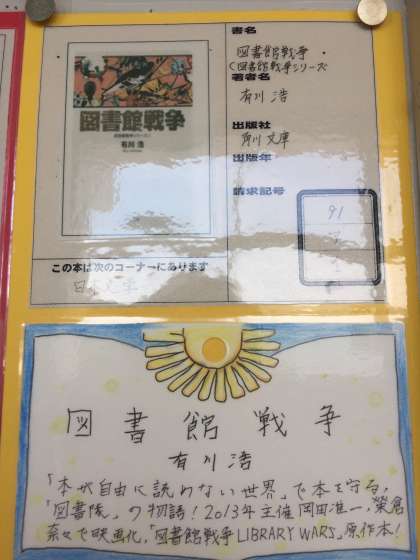 書名
図書館戦争・
(図書館戦争シリーズ
著者名
有川 浩
出版社
角川文庫
出版年
請求記号
91
図書館戦争
図書館戦争シリーズ①
有川 浩
この本は次のコーナーにあります
日本文学
図書館戦争
有川浩
「本が自由に読めない世界」で本を守る,
「図書隊」の物語!2013年主催岡田准一,榮倉
奈々で映画化,「図書館戦争LIBRARY WARS」原作本!